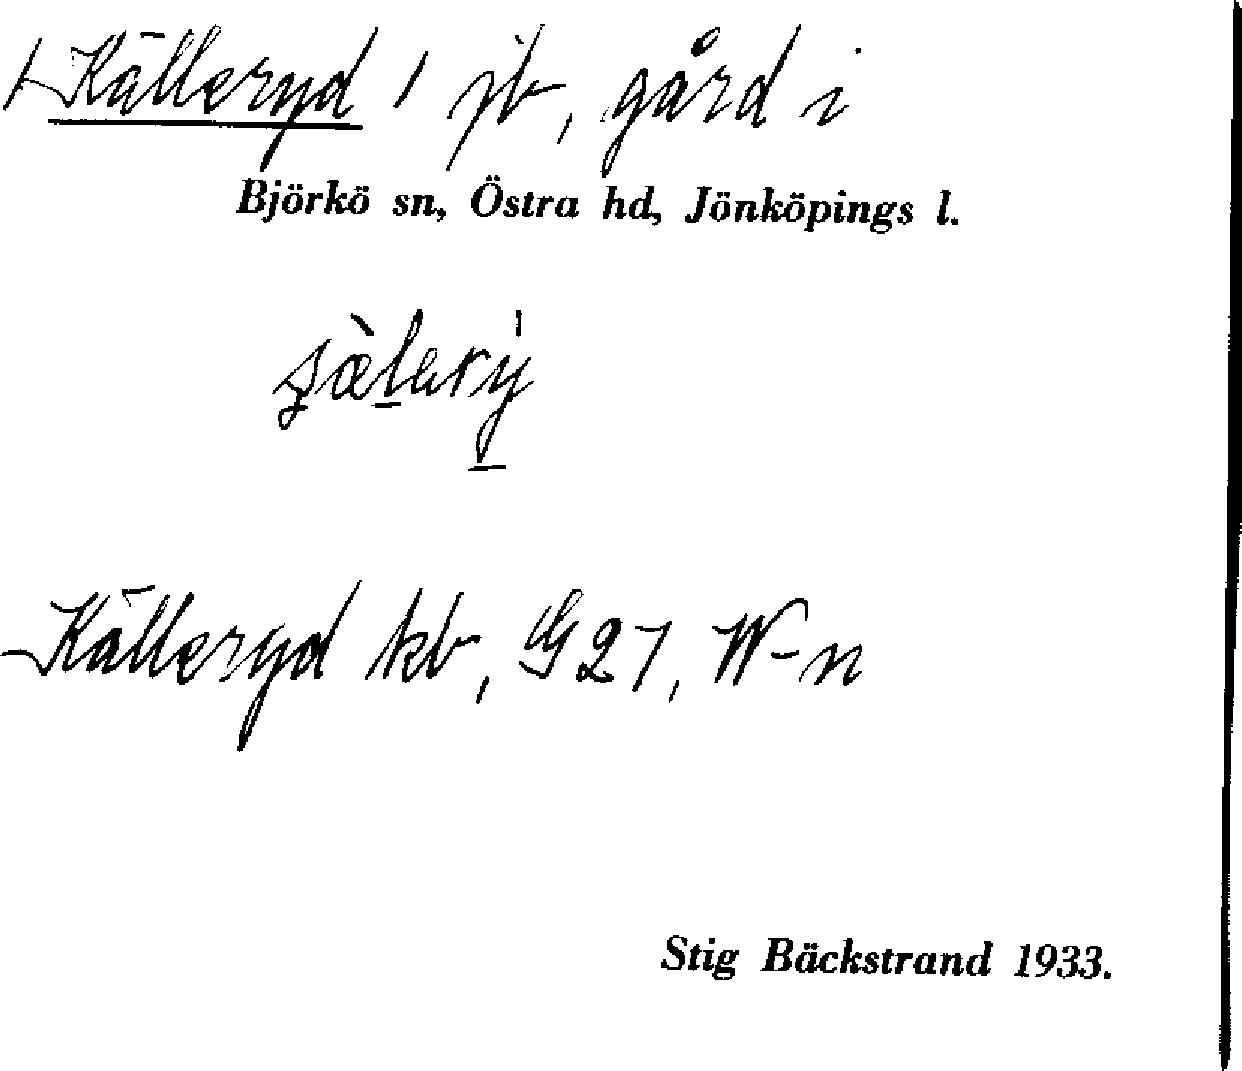 / Källeryd / jb, gård i
Björkö sn, Östra hd, Jönköpings l.
Källeryd kb, G27, W-n
Stig Bäckstrand 1933.